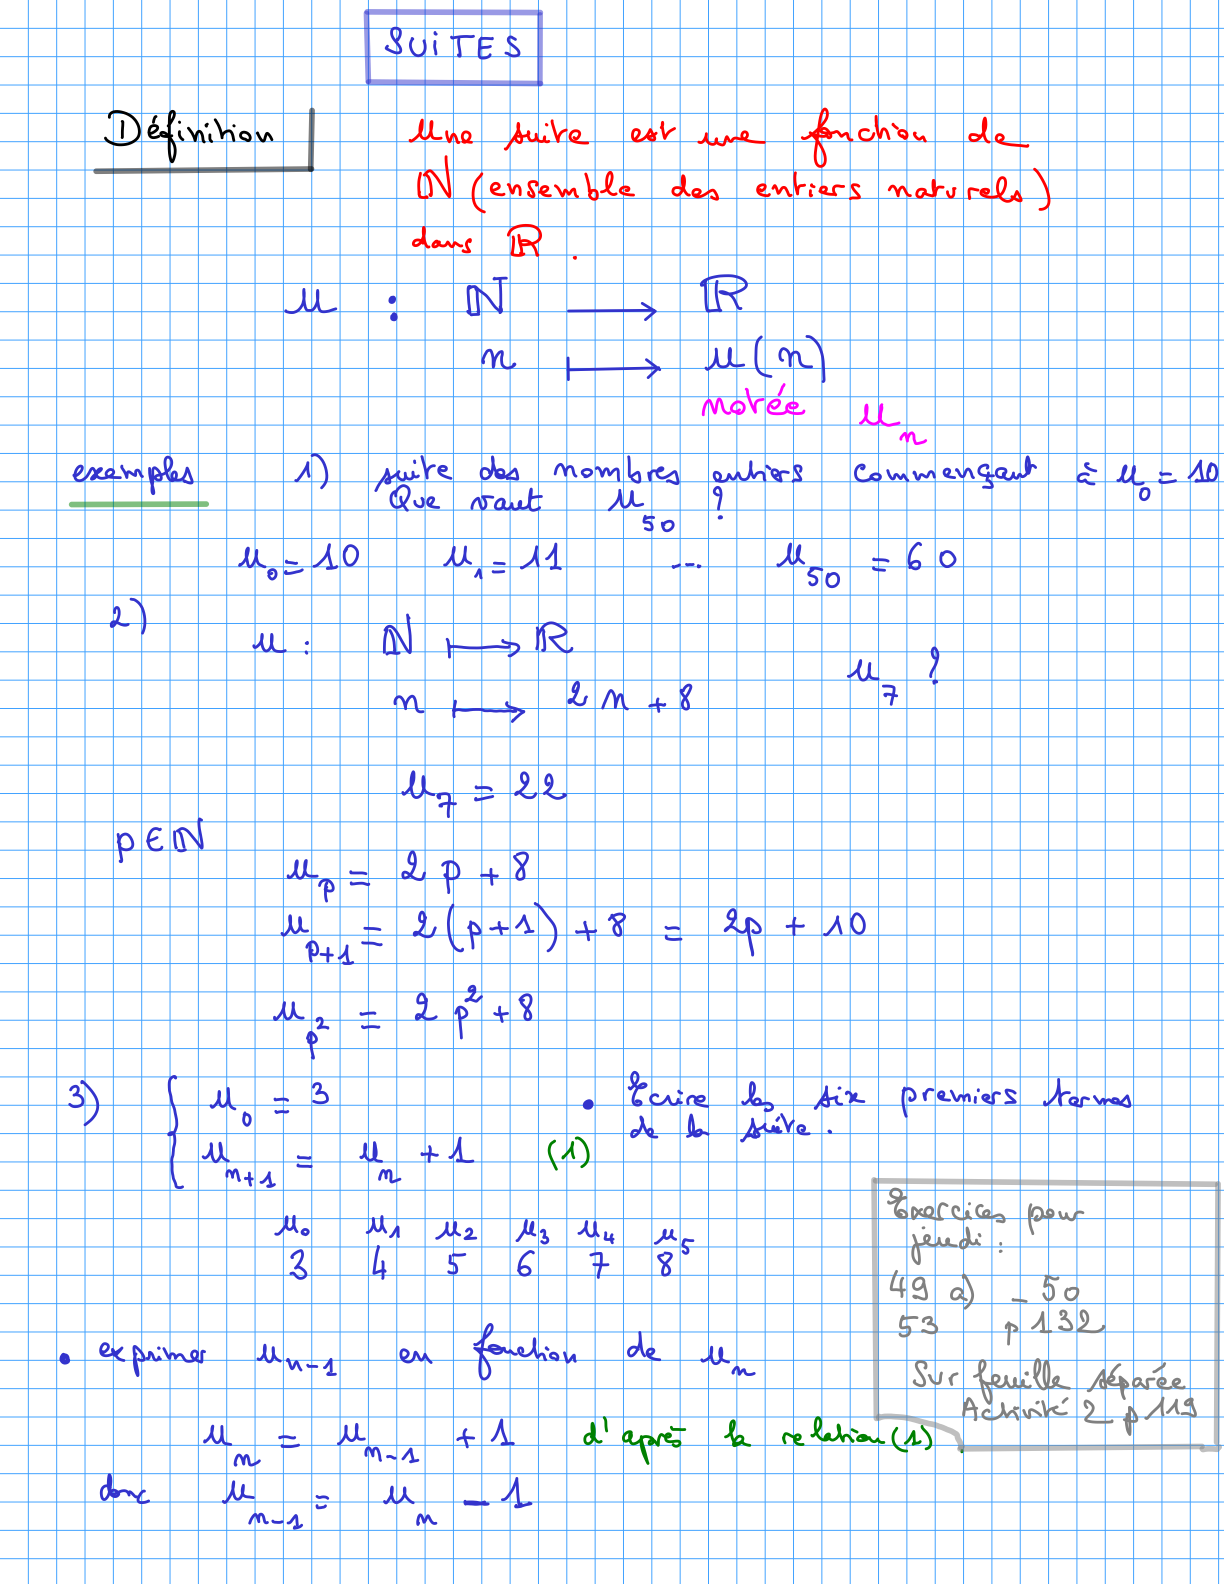 SUITES
Définition
Une suite est une fonction de
ℕ (ensemble des entiers naturels)
dans ℝ.
u : ℕ ⟶ ℝ
n ⟼ u(n)
notée u_n
exemples 1) suite des nombres entiers commençant à u_0 = 10
Que vaut u_50 ?
u_0 = 10 u_1 = 11 ... u_50 = 60
2)
u : ℕ ⟼ ℝ
u_7 ?
n ⟼ 2n + 8
u_7 = 22
p ∈ ℕ
u_p = 2p + 8
u_{p+1} = 2(p+1) + 8 = 2p + 10
u_{p²} = 2p² + 8
3) { u_0 = 3
u_{n+1} = u_n + 1 (1)
• Ecrire les six premiers termes
de la suite.
u_0 u_1 u_2 u_3 u_4 u_5
3 4 5 6 7 8
Exercices pour
jeudi :
49 a) _ 50
53 p 132
Sur feuille séparée
Activité 2 p 119
• exprimer u_{n-1} en fonction de u_n
u_n = u_{n-1} + 1 d'après la relation (1)
donc u_{n-1} = u_n - 1